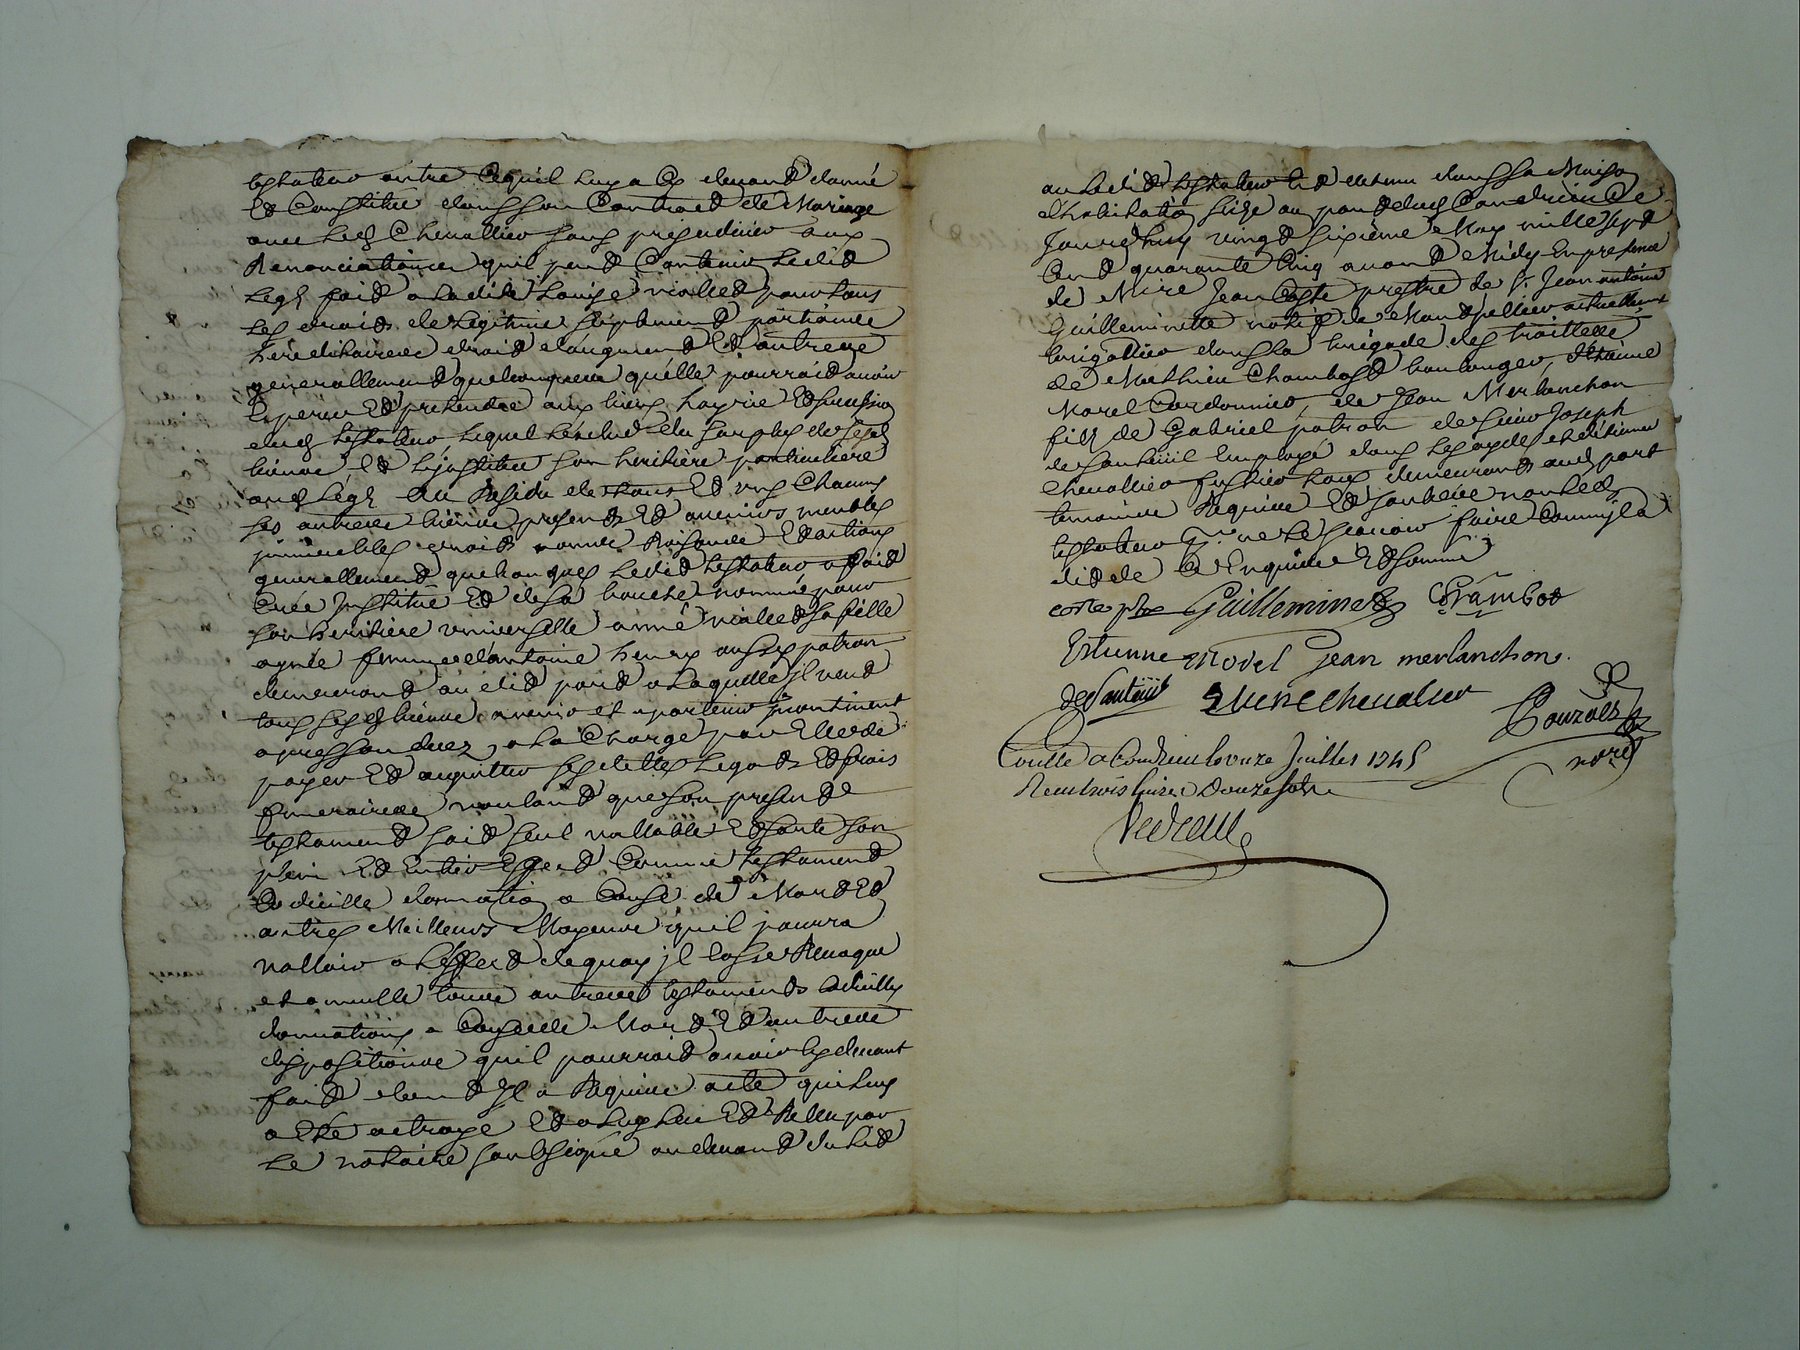 testateur outre Cequil luy a Cy devand donné
Et Constitué dans son Contract de Mariage
avec led Chevallier sans prejudicier aux
Renonciations quil peut Contenir ledit
legs fait a ladite Louise viallet pour tous
les droits de legitime suplement portion
hereditaires droit daugment Et autres
generallement quelconques quelle pourroit avoir
Esperer Et pretendre aux biens hoyrie Et succession
dud testateur lequel lexclud du surplus de ses
biens Et ljnstitue son heritiere particuliere
aud legs Au Residu de tous Et uns Chacuns
ses autres biens presents Et avenirs meubles
jmmeubles droits noms Raisons Et actions
generallement quelconques ledit testateur a fait
Creé Jnstitué Et de sa bouche nommé pour
son heritiere universelle anne viallet sa fille
aynée femme dantoine henry aussy patron
demeurant audit port a laquelle jl veut
tous sesd biens avenir et apartenir jncontinent
apres son decez, a la Charge par Elle de
payer Et acquitter ses dettes legats Et frais
funeraires voulant que son present
testament soit seul vallable Et sorte son
plein Et Entier Effet Comme testament
Codicille donnation a Cause de Mort Et
autres Meilleurs Moyens quil pourra
valloir a leffet dequoy jl Casse Revoque
et annulle tous autres testaments Codicilles
donnations a Cause de Mort Et autres
dispositions quil pourroit avoir Cy devant
fait dont Jl a Requis acte qui luy
a Eté octroyé Et a luy leu Et Releu par
Le notaire soubsigné audevant dulit
au ledit testateur Est detenu dans sa Maison
dhabitation size au port dud Condrieu Ce
Jourdhuy vingt sixieme May mille sept
Cent quarante Cinq avant Midy En presence
de Mire Jean Coste prestre de Sr Jean antoine
Guilleminette natif de Montpellier actuellement
brigadier dans la brigade des traittes
de Mathieu Chambost boulanger, Etienne
Morel Cordonnier, de Jean Merlanchon
fils de Gabriel patron de sieur Joseph
desauteüil Employé dans les aydes et detienne
Chevallier tous demeurants aud port
temoins Requis Et soubsignés non led
testateur pour ne le scavoir faire Comme jl a
dit de Ce Enquis Et sommé
coste ptre Guilleminet Chambost
Estienne Morel Jean merlanchon.
deSauteüil Etiene chevalier
Bouzols
nore
Conllé a Condrieu le onze Juillet 1745
Reçu trois livres Douze sols